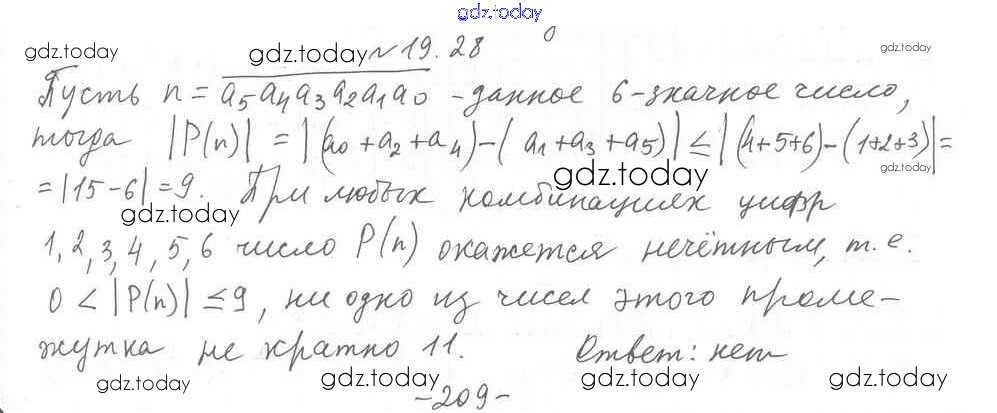 gdz.today
gdz.today gdz.today №19.28 gdz.today
Пусть n = a₅a₄a₃a₂a₁a₀ - данное 6-значное число,
тогда |P(n)| = |(a₀+a₂+a₄)-(a₁+a₃+a₅)| ≤ |(4+5+6)-(1+2+3)| =
= |15-6| = 9. При любых комбинациях цифр
gdz.today gdz.today
1, 2, 3, 4, 5, 6 число P(n) окажется нечётным, т.е.
0 < |P(n)| ≤ 9, ни одно из чисел этого проме-
жутка не кратно 11. Ответ: нет
gdz.today gdz.today gdz.today gdz.today
-209-